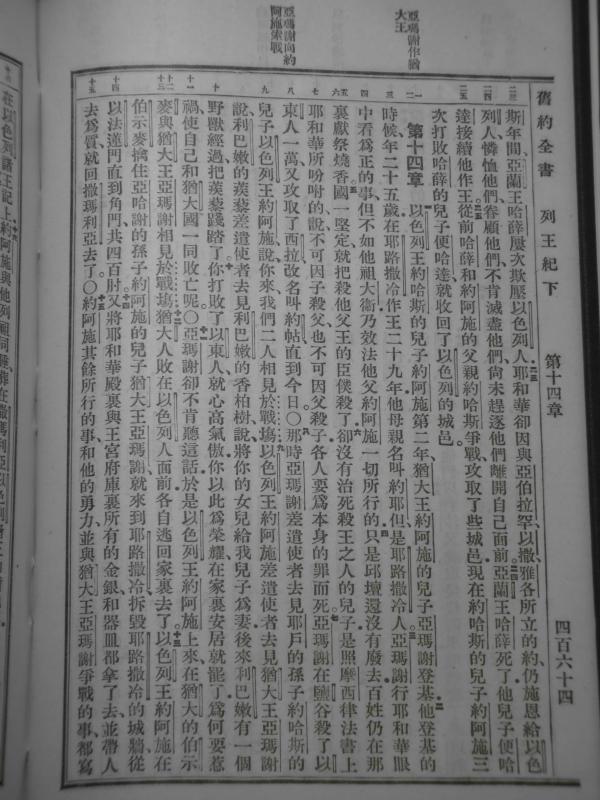 舊約全書 列王紀下 第十四章 四百六十四
亞瑪謝作猶
大王
亞瑪謝向約
阿施索戰
斯年間亞蘭王哈薛屢次欺壓以色列人耶和華卻因與亞伯拉罕以撒雅各所立的約仍施恩給以色
列人憐恤他們眷顧他們不肯滅盡他們尙未趕逐他們離開自己面前亞蘭王哈薛死了他兒子便哈
達接續他作王從前哈薛和約阿施的父親約哈斯爭戰攻取了些城邑現在約哈斯的兒子約阿施三
次打敗哈薛的兒子便哈達就收回了以色列的城邑
第十四章 以色列王約哈斯的兒子約阿施第二年猶大王約阿施的兒子亞瑪謝登基他登基的
時候年二十五歲在耶路撒冷作王二十九年他母親名叫約耶但是耶路撒冷人亞瑪謝行耶和華眼
中看爲正的事但不如他祖大衛乃效法他父約阿施一切所行的只是邱壇還沒有廢去百姓仍在那
裏獻祭燒香國一堅定就把殺他父王的臣僕殺了卻沒有治死殺王之人的兒子是照摩西律法書上
耶和華所吩咐的說不可因子殺父也不可因父殺子各人要爲本身的罪而死亞瑪謝在鹽谷殺了以
東人一萬又攻取了西拉改名叫約帖直到今日○那時亞瑪謝差遣使者去見耶戶的孫子約哈斯的
兒子以色列王約阿施說你來我們二人相見於戰塲以色列王約阿施差遣使者去見猶大王亞瑪謝
說利巴嫩的蒺藜差遣使者去見利巴嫩的香柏樹說將你的女兒給我兒子爲妻後來利巴嫩有一個
野獸經過把蒺藜踐踏了你打敗了以東人就心高氣傲你以此爲榮耀在家裏安居就罷了爲何要惹
禍使自己和猶大國一同敗亡呢○亞瑪謝卻不肯聽這話於是以色列王約阿施上來在猶大的伯示
麥與猶大王亞瑪謝相見於戰塲猶大人敗在以色列人面前各自逃回家裏去了以色列王約阿施在
伯示麥擒住亞哈謝的孫子約阿施的兒子猶大王亞瑪謝就來到耶路撒冷拆毀耶路撒冷的城牆從
以法蓮門直到角門共四百肘又將耶和華殿裏與王宮府庫裏所有的金銀和器皿都拿了去並帶人
去爲質就回撒瑪利亞去了○約阿施其餘所行的事和他的勇力並與猶大王亞瑪謝爭戰的事都寫
在以色列諸王記上約阿施與他列祖同睡葬在撒瑪利亞以色列